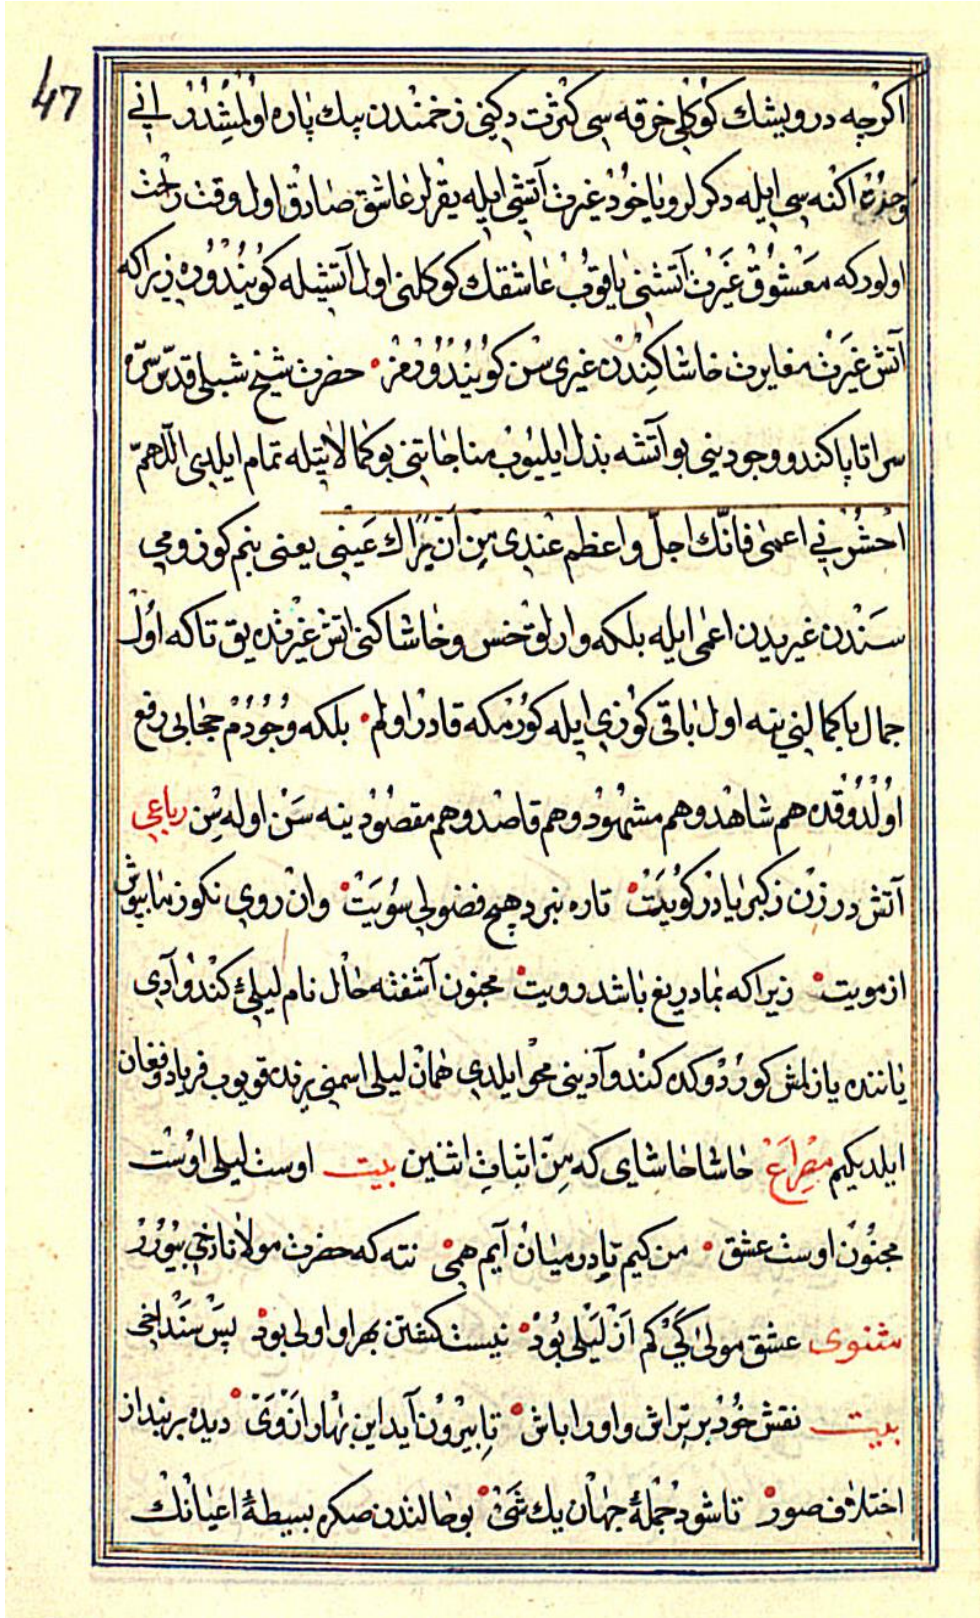 47
اکرچه درویشك كوكلی خرقه سی کثرت دکنی زخمندن بيك پاره اولمشدر انی
وحدت اکنه سی ايله دکرلر و یا خود غیرت آتشی ايله یقرلر عاشق صادق اول وقت راحت
اولور که معشوق غیرت آتشنی یاقوب عاشقك کوکلنی اول آتشیله کویندوره زیرا که
آتش غیرت مغایرت خاشاکندن غیری سن کویندورمز حضرت شیخ شبلی قدس سره
سراتاپا کندو وجودینی بو آتشه بذل ایلیوب مناجاتنی بو کمالاتیله تمام ایلدی اللهم
احشرنی اعمی فانك اجل و اعظم عندی من ان یراك عینی یعنی بنم کوزومی
سندن غیریدن اعمی ایله بلکه وارلق خس و خاشاکنی اتش غیرتده یق تا که اول
جمال باکمالنی ینه اول باقی کوزی ایله کورمکه قادر اولم بلکه وجودم حجابی رفع
اولدوقده هم شاهد و هم مشهود و هم قاصد و هم مقصود ینه سن اوله سن رباعی
آتش در زن ز کبریا در کویت تا ره نبرد هیچ فضولی سویت وان روی نکو ز ما بپوش
از مویت زیرا که بما دریغ باشد رویت مجنون آشفته حال نام لیلیٔ کندو آدی
یاننده یازلمش کوردوکده کندو آدینی محو ایلدی همان لیلی اسمنی یرنده قویوب فریاد و فغان
ایلدیکیم مصراع حاشا حاشای که من اثبات اثنین بیت اوست لیلی اوست
مجنون اوست عشق من کیم تا در میان آیم همی نته که حضرت مولانا دخی بیورر
مثنوی عشق مولی کی کم از لیلی بود نیست کشتن بهر او اولی بود پس سن داخی
بیت نقش خود بر تراش و اورا باش تا بیرون آید این بهار از وی دیده بر بند از
اختلاف صور تا شود جملهٔ جهان یك شیٔ بو حالندن صکره بسیطهٔ اعیانك